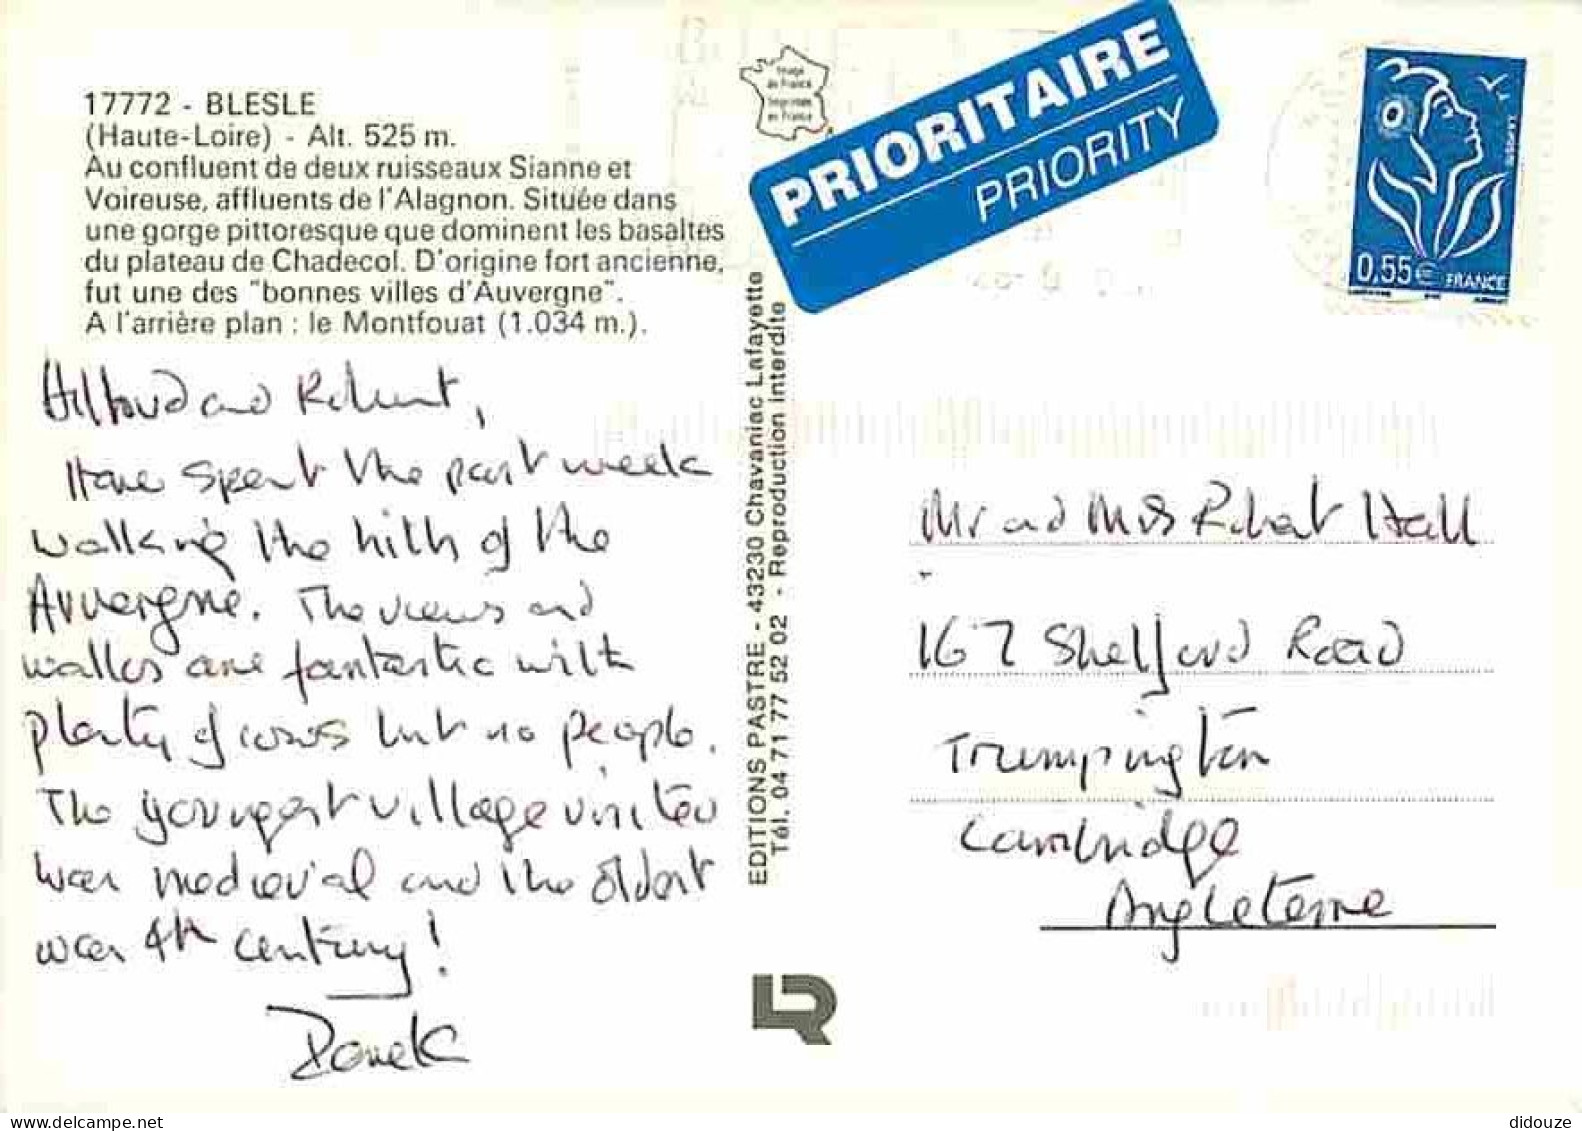 17772 - BLESLE
(Haute-Loire) - Alt. 525 m.
Au confluent de deux ruisseaux Sianne et
Voireuse, affluents de l'Alagnon. Située dans
une gorge pittoresque que dominent les basaltes
du plateau de Chadecol. D'origine fort ancienne,
fut une des "bonnes villes d'Auvergne".
A l'arrière plan : le Montfouat (1.034 m.).
and Robert,
Have spent the past week
walking the hills of the
Auvergne. The views and
walks are fantastic with
plenty of cows but no people.
The youngest village visited
was medieval and the oldest
was 4th century!
Image
de France
Imprimée
en France
PRIORITAIRE
PRIORITY
LAMOUCHE
0,55€ FRANCE
EDITIONS PASTRE - 43230 Chavaniac Lafayette
Tél. 04 71 77 52 02 - Reproduction interdite
Mr and Mrs Robert Hall
167 Shelford Road
Trumpington
Cambridge
Angleterre
LR
didouze